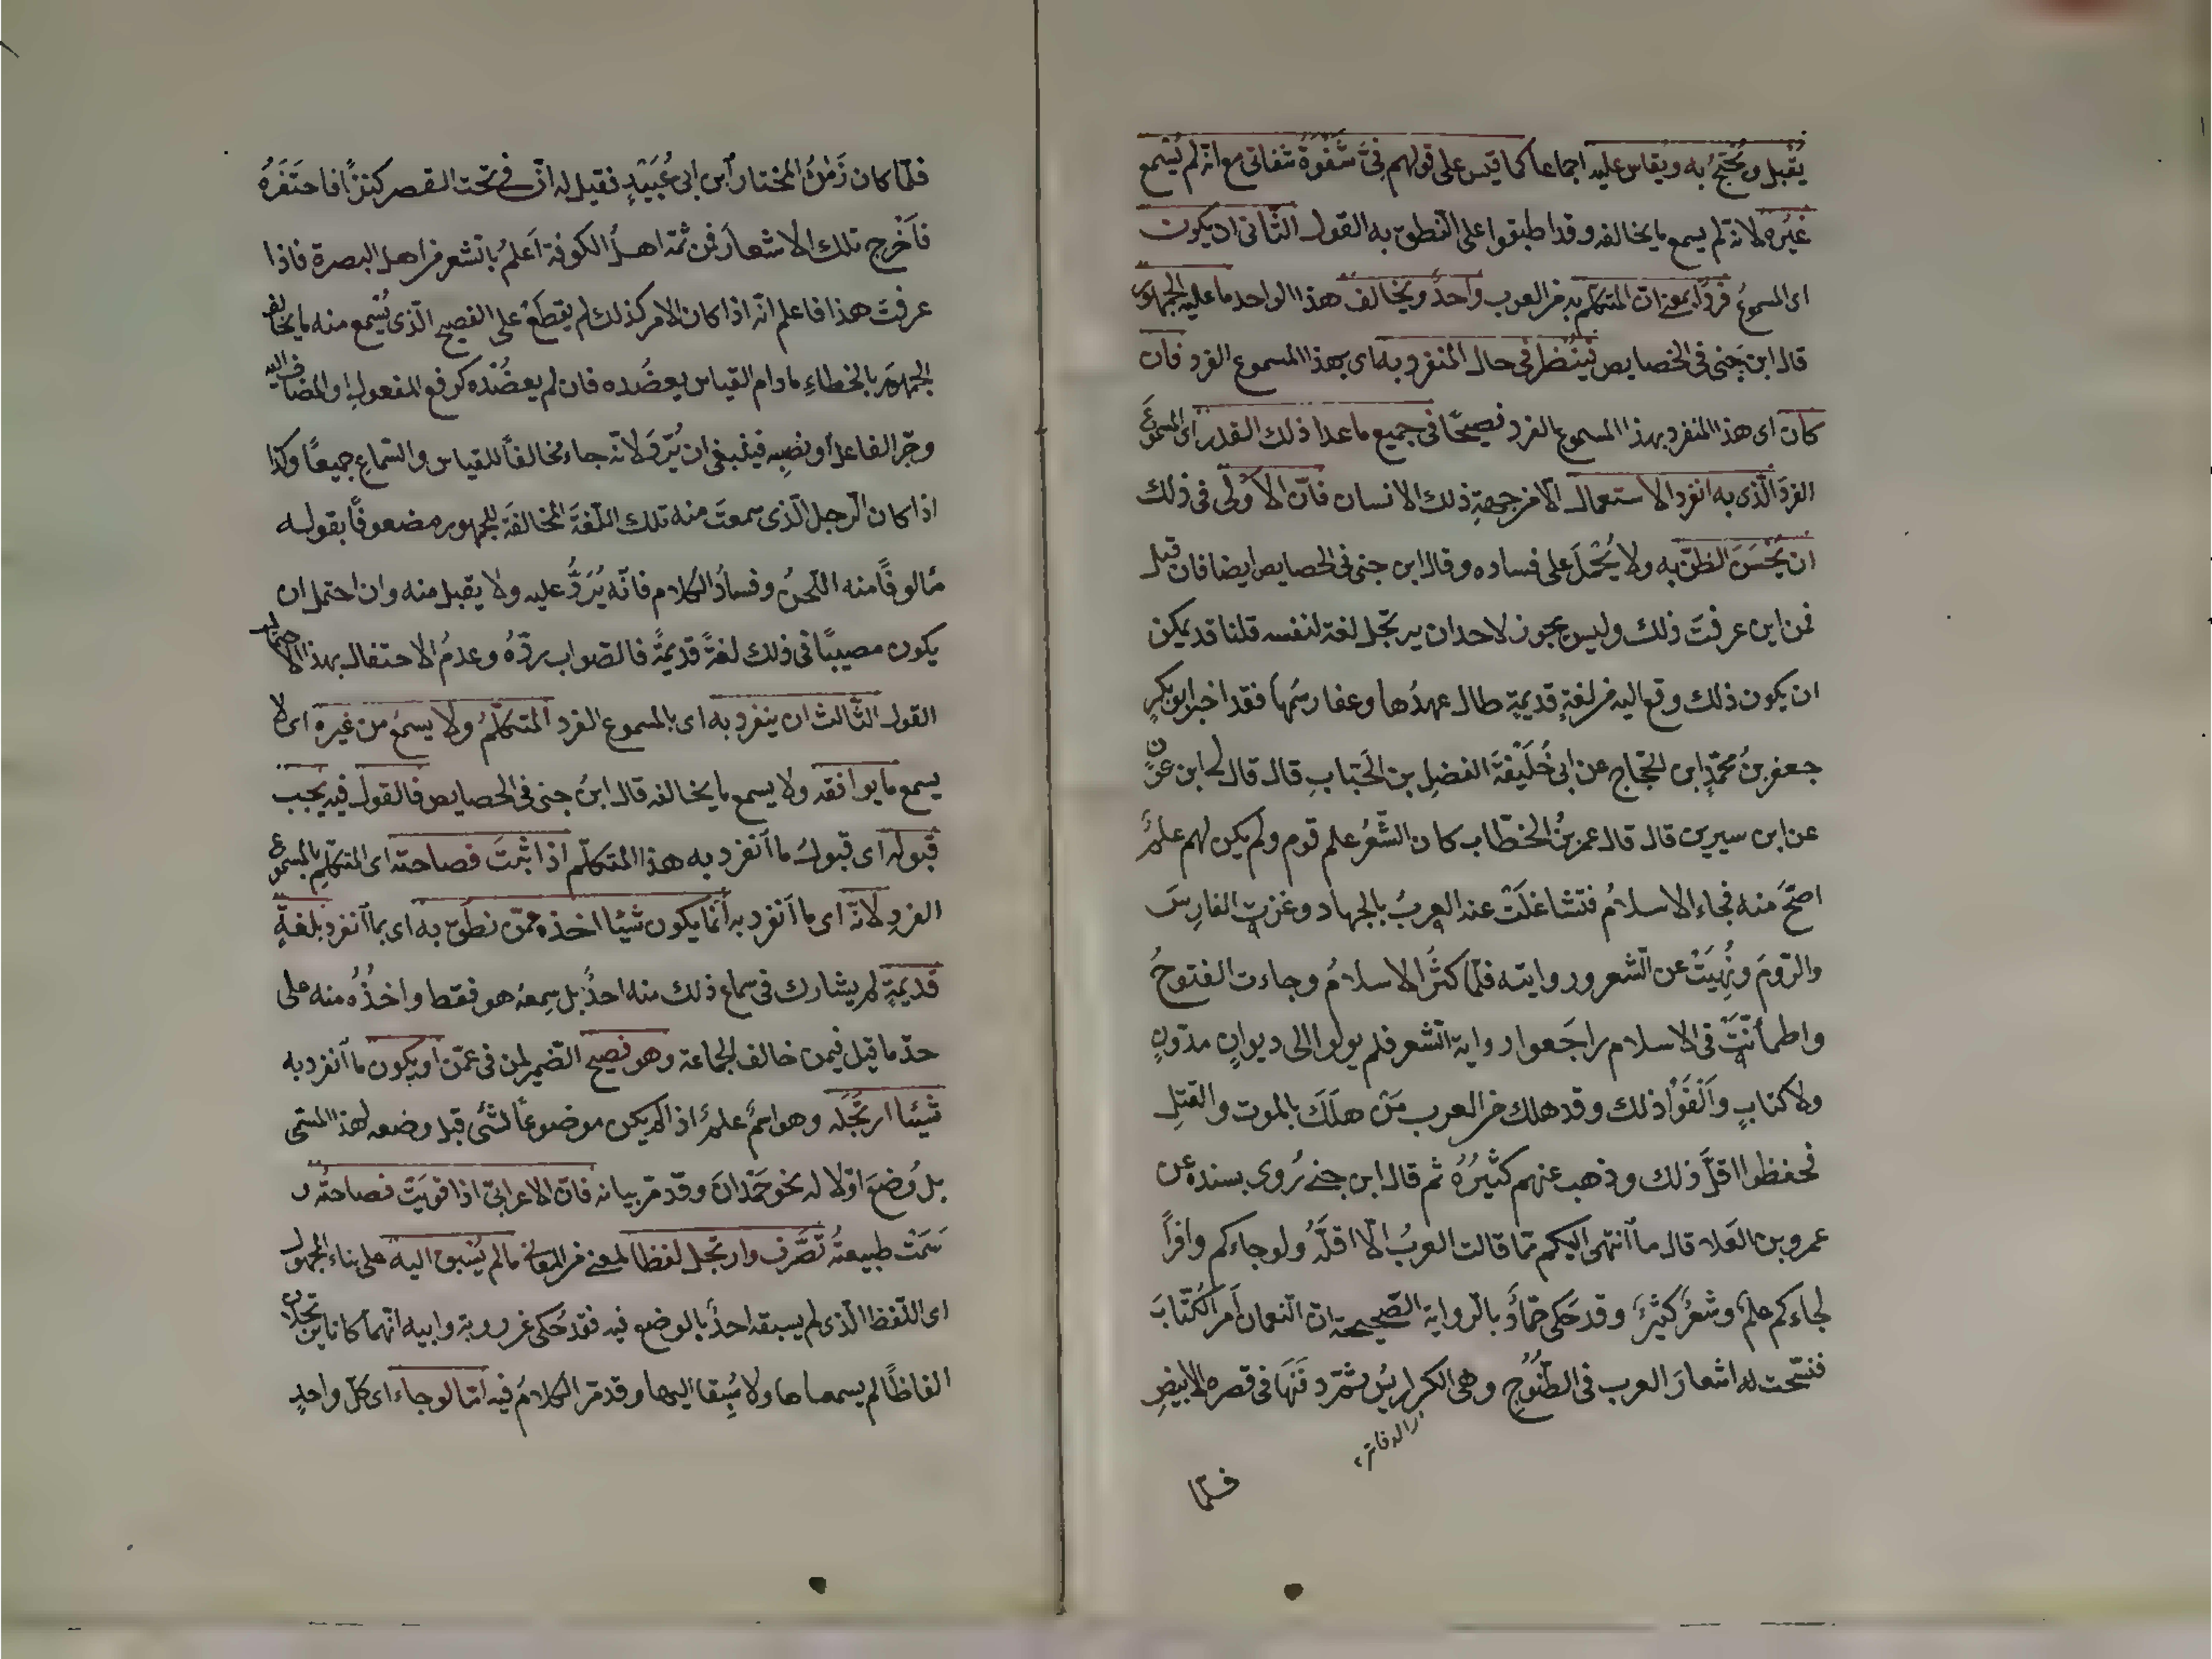 يُقبل ويُحتجُّ به ويُقاس عليه اجماعا كما قيس على قولهم فى شَنُوءَة شنائى مع انه لم يُسْمع
غيُره لانه لم يسمع ما يخالفه وقد اطبقوا على النطق به القول الثانى ان يكون
اى المسموعُ فردًا بمعنى ان المتكلّم به من العرب واحدٌ ويخالف هذا الواحد ما عليه الجمهور
قال ابن جنى فى الخصايص يُنْظر فى حال المنفرد به اى بهذا المسموع الفرد فان
كان اى هذا المنفرد بهذا المسموع الفرد فصيحًا فى جميع ما عدا ذلك القدر اى المسموعَ
الفردَ الّذى به انفرد الاستعمال الّا من جهةِ ذلك الانسان فانّ الاَوْلى فى ذلك
ان يُحْسَنَ الظنّ به ولا يُحْمَلَ على فساده وقال ابن جنى فى الخصايص ايضا فان قيل
فمن اين عرفتَ ذلك وليس يجوز لاحد ان يرتجّل لغة لنفسه قلنا قد يمكن
ان يكون ذلك وقع اليه من لغةٍ قديمةٍ طال عهدُها وعفا رسمُها فقد اخبر ابو بكرٍ
جعفر بنُ محمّدٍ ابن الحجّاج عن ابى خَلِيْفَةَ الفضلِ بن الحبَابِ قال قال لى ابن عونٍ
عن ابن سيرين قال قال عمر بنُ الخطّاب كان الشّعرُ علم قوم ولم يكن لهم علمٌ
اصَحَّ منه فجاء الاسلامُ فتشاغَلَتْ عنه العربُ بالجهاد وغزتِ الفارسَ
والرّومَ ونُهِيَتْ عن الشعر وروايته فلمّا كثُر الاسلامُ وجاءت الفتوحُ
واطمأنّتْ فى الاسلام راجَعوا رواية الشعر فلم يولوا الى ديوانٍ مدوّنٍ
ولا كتابٍ وَاَلْفَوْا ذلك وقد هلك من العرب مَنْ هلَكَ بالموت والقتلِ
فحفظوا اقلَّ ذلك وذهب عنهم كثيرُهُ ثم قال ابن جنى يُروى بسنده عن
عمرو بن العَلاء قال ما انتهى اليكم ممّا قالت العربُ الّا اقلّهُ ولو جاءكم وافرًا
لجاءكم علمٌ وشعرٌ كثيرٌ وقد حَكى حمّادٌ بالرواية الصّحيحة انّ النعمان اَمر الكُتّابَ
فنسّخت له اشعارَ العرب فى الطّنُوجِ وهى الكراريسُ ثمّ دفَنَها فى قصره الابيضِ
والدفاتر
فلمّا
فلمّا كان زَمَنُ المختار ابن ابى عُبَيْدٍ فقيل له انّ فى تحت القصر كنزًا فاحتَفَرَهُ
فاَخرج تلك الاشعارَ فمن ثمّه اهلُ الكوفة اَعلمُ بالشعر من اهل البصرة فاذا
عرفتَ هذا فاعلم انّه اذا كان الامر كذلك لم يقطَعْ على الفصيح الّذى يُسْمع منه ما يخالف
الجمهورَ بالخطاءِ ما دام القياس يعضُده فان لم يعضُدْه كرفع المفعولِ والمضاف اليه
وجرّ الفاعل او نصبِه فينبغى ان يُرَدَّ لانّه جاء مخالفًا للقياس والسّماع جميعًا وكذا
اذا كان الرجل الّذى سمعتَ منه تلك اللّغةَ المخالفَةَ للجمهور مضعوفًا بقوله
مألوفًا منه اللّحنُ وفسادُ الكلام فانّه يُرَدُّ عليه ولا يقبل منه وان احتمل ان
يكون مصيبًا فى ذلك لغةً قديمةً فالصّواب ردّهُ وعدمُ الاحتفال بهذا الاحتمال
القول الثّالث ان ينفرد به اى بالمسموع الفرد المتكلّمُ ولا يسمعُ من غيره اى لا
يسمع ما يوافقه ولا يسمع ما يخالفه قال ابنُ جنى فى الخصايص فالقول فيه يجب
قبوله اى قبولُ ما اَنفرد به هذا المتكلّم اذا ثبتَ فصاحته اى المتكلّمِ بالمسموع
الفردِ لانّه اى ما اَنفرد به اَمّا يكون شيئا اخذه عمّن نطق به اى بما اَنفرد بلغةٍ
قديمةٍ لم يشارك فى سماع ذلك منه احدٌ بل سِمعه هو فقط واخذُهُ منه على
حدّ ما قيل فيمن خالف الجماعة وهو فصيح الضّمير لمن فى عمّن او يكون ما اَنفرد به
شيئا ارتجَله وهو اسمٌ علمٌ اذا لم يكن موضوعًا لشئ قبل وضعه لهذا المسمّى
بل وُضِعَ اوّلا له نحو حَمْدانَ وقد مرّ بيانه فانّ الاعرابىّ اذا قَوِيَتْ فصاحتُه و
سَمَتْ طبيعتُه تصَّرف وارتجل لفظا لمعنى من المعانى ما لم يُسْبق اليه على بناء المجهول
اى اللّفظ الّذى لم يسبقه احدٌ بالوضع فيه فقد حَكى عن رؤبة وابيه انّهما كانا يرتجلان
الفاظًا لم يسمعاها ولا سُبِقا اليها وقد مرّ الكلامُ فيه امّا لو جاء اى كلّ واحدٍ